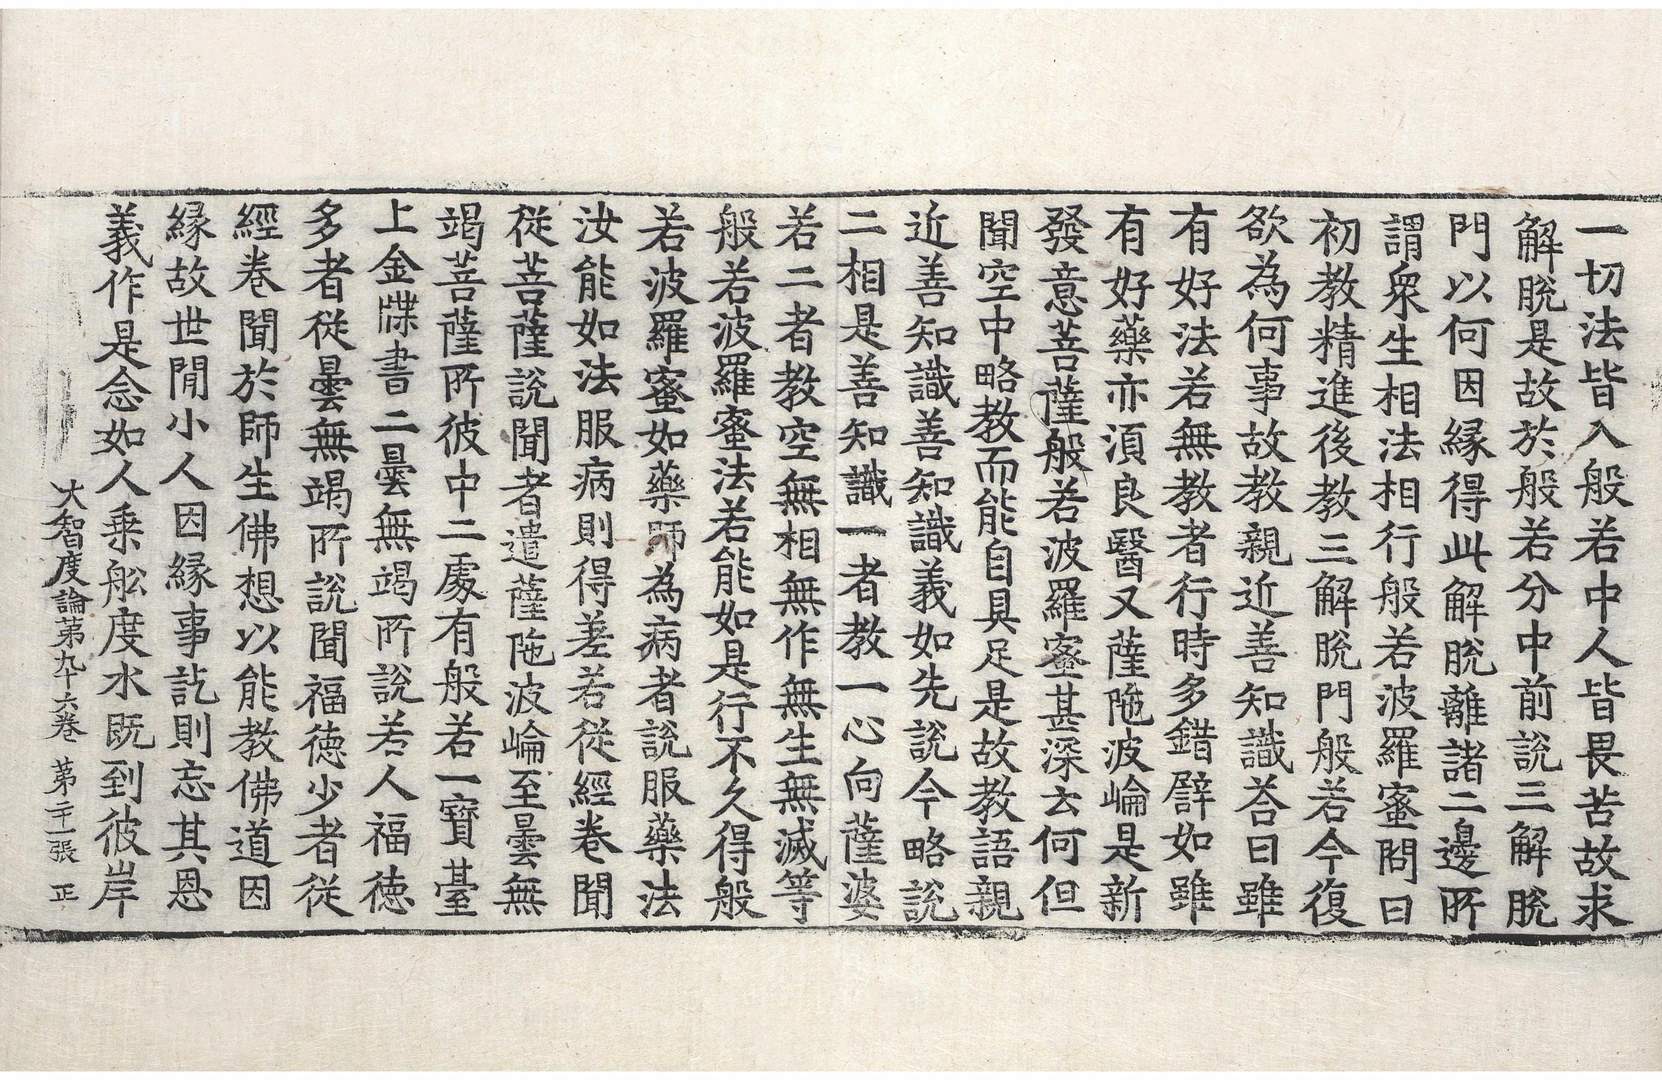 一切法皆入般若中人皆畏苦故求
解脫是故於般若分中前說三解脫
門以何因緣得此解脫離諸二邊所
謂衆生相法相行般若波羅蜜問曰
初教精進後教三解脫門般若今復
欲為何事故教親近善知識荅曰雖
有好法若無教者行時多錯譬如雖
有好藥亦湏良醫又薩陁波崘是新
發意菩薩般若波羅蜜甚深云何但
聞空中略教而能自具足是故教語親
近善知識善知識義如先說今略說
二相是善知識一者教一心向薩婆
若二者教空無相無作無生無滅等
般若波羅蜜法若能如是行不久得般
若波羅蜜如藥師為病者說服藥法
汝能如法服病則得差若從經卷聞
從菩薩說聞者遣薩陁波崘至曇無
竭菩薩所彼中二處有般若一寶臺
上金牒書二曇無竭所說若人福德
多者從曇無竭所說聞福德少者從
經卷聞於師生佛想以能教佛道因
緣故世閒小人因緣事訖則忘其恩
義作是念如人乗舩度水既到彼岸
大智度論第九十六卷 第二十一張 正